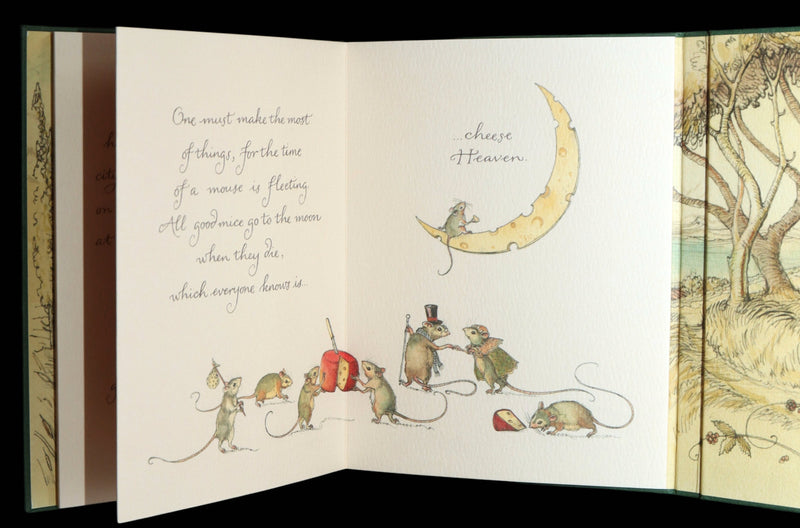 One must make the most
of things, for the time
of a mouse is fleeting
All good mice go to the moon
when they die,
which everyone knows is...
...cheese
Heaven.